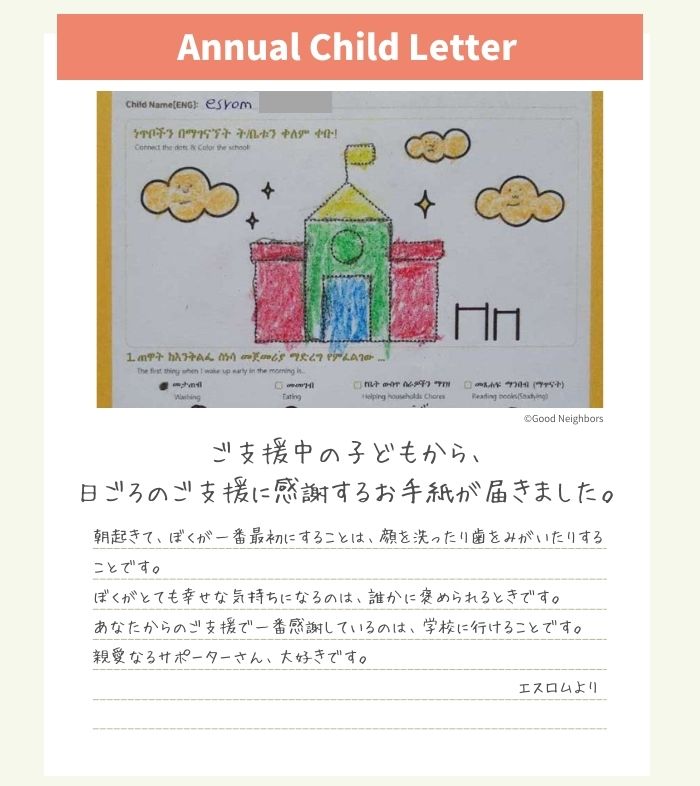 Annual Child Letter
Child Name[ENG]: esrom
ነጥቦችን በማገናኘት ት/ቤቱን ቀለም ቀቡ!
Connect the dots & Color the school!
1. ጠዋት ከእንቅልፌ ስነሳ መጀመሪያ ማድረግ የምፈልገው ...
The first thing when I wake up early in the morning is..
መታጠብ መመገብ የቤት ውስጥ ስራዎችን ማገዝ መጽሐፍ ማንበብ (ማጥናት)
Washing Eating Helping households Chores Reading books(Studying)
©Good Neighbors
ご支援中の子どもから、
日ごろのご支援に感謝するお手紙が届きました。
朝起きて、ぼくが一番最初にすることは、顔を洗ったり歯をみがいたりする
ことです。
ぼくがとても幸せな気持ちになるのは、誰かに褒められるときです。
あなたからのご支援で一番感謝しているのは、学校に行けることです。
親愛なるサポーターさん、大好きです。
エスロムより